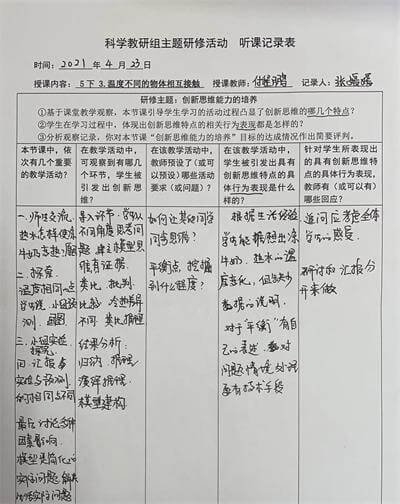 科学教研组主题研修活动 听课记录表
时间：2021 年 4 月 23 日
授课内容：5下 3.温度不同的物体相互接触 授课教师： 记录人：张
研修主题：创新思维能力的培养
①基于课堂教学观察，本节课引导学生学习的活动过程凸显了创新思维的哪几个特点？
②学生在学习过程中，体现出创新思维特点的相关行为表现都是怎样的？
③分析观察记录，你对本节课“创新思维能力的培养”目标的达成情况作出简要评判。
本节课中，依次有几个重要的教学活动？
在教学活动中，可观察到有哪几个环节，学生被引发出创新思维？
在该教学活动中，教师预设了（或可以预设）哪些活动要求（或问题）？
在该教学活动中，学生被引发出具有创新思维特点的具体行为表现是什么样的？
针对学生所表现出的具有创新思维特点的具体行为表现，教师有（或可以有）哪些回应？
一、师生交流
热水怎样使凉
牛奶变热？
二、探索
温度相同
预
测
三、小组实验
探究
四、汇报
实验与预测
的相同与不同
最后讨论
因素影响
模型是简化的
实际问题
实际问题
导入环节：学生从
不同角度思考问
题，建立模型思
维有证据
类比、批判
比较
不同 类比推理
结果分析：
归纳、推理
演绎推理
模型建构
如何让其他同学
问合思缘？
平衡点，挖掘
到什么程度？
根据生活经验
学生能推想出凉
牛奶、热水的温
度变化，但缺少
数据的说明
对于“平衡”有自
己的表述，面对
问题情境处理
要有技术手段
追问后考虑全体
学生的感受
研讨和汇报分
开来做